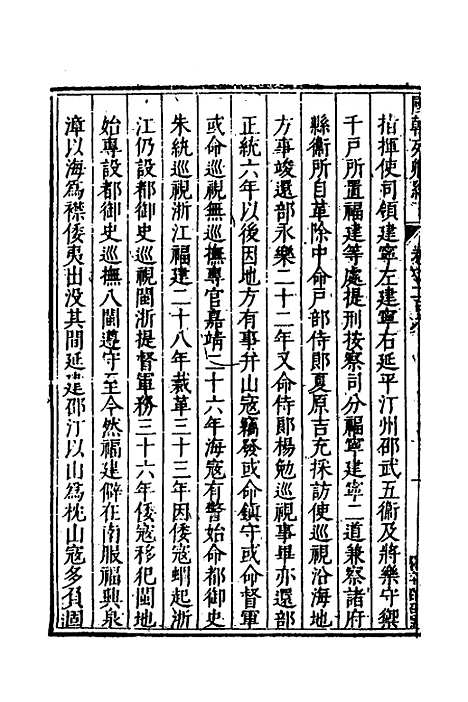 國朝列卿紀
指揮使司領建寧左建寧右延平汀州邵武五衛及將樂守禦
千戶所置福建等處提刑按察司分福寧建寧二道兼察諸府
縣衛所自革除中命戶部侍郎夏原吉充採訪使巡視沿海地
方事竣還部永樂二十二年又命侍郎楊勉巡視事畢亦還部
正統六年以後因地方有事并山寇竊發或命鎮守或命督軍
或命巡視無巡撫專官嘉靖二十六年海寇有警始命都御史
朱紈巡視浙江福建二十八年裁革三十三年因倭寇蝟起浙
江仍設都御史巡視閩浙提督軍務三十六年倭寇移犯閩地
始專設都御史巡撫八閩遵守至今然福建僻在南服福興泉
漳以海為襟倭夷出没其間延建邵汀以山為枕山寇多負固